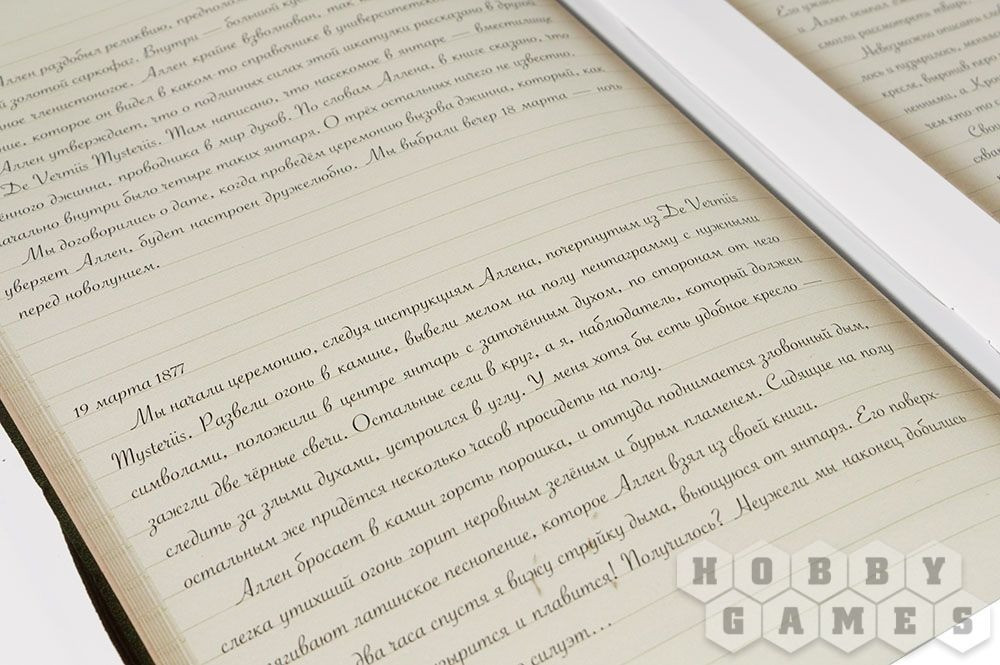 Аллен раздобыл реликвию, предполо
й золотой саркофаг. Внутри — большой ку
ное членистоногое. Аллен крайне взволнован, так к
ние, которое он видел в каком-то справочнике в университетской
Аллен утверждает, что о подлинных силах этой шкатулки рассказано в другой
De Vermiis Mysteriis. Там написано, что насекомое в янтаре — вместилище
ённого джинна, проводника в мир духов. По словам Аллена, в книге сказано, что
начально внутри было четыре таких янтаря. О трёх остальных ничего не известно.
Мы договорились о дате, когда проведём церемонию вызова джинна, который, как
уверяет Аллен, будет настроен дружелюбно. Мы выбрали вечер 18 марта — ночь
перед новолунием.
19 марта 1877
Мы начали церемонию, следуя инструкциям Аллена, почерпнутым из De Vermiis
Mysteriis. Развели огонь в камине, вывели мелом на полу пентаграмму с нужными
символами, положили в центре янтарь с заточённым духом, по сторонам от него
зажгли две чёрные свечи. Остальные сели в круг, а я, наблюдатель, который должен
следить за злыми духами, устроился в углу. У меня хотя бы есть удобное кресло —
остальным же придётся несколько часов просидеть на полу.
Аллен бросает в камин горсть порошка, и оттуда поднимается зловонный дым,
слегка утихший огонь горит неровным зелёным и бурым пламенем. Сидящие на полу
тягивают латинское песнопение, которое Аллен взял из своей книги.
два часа спустя я вижу струйку дыма, вьющуюся от янтаря. Его поверх-
зырится и плавится! Получилось? Неужели мы наконец добились
силуэт...
Его ужа
и Аллен
смогли рассмотреть тварь.
Невозможно описать
лось и пузырилось, меняя
кресле, выронив перо
ненными, а Кро
чем кто-то
Сво
схва
HOBBY
GAMES